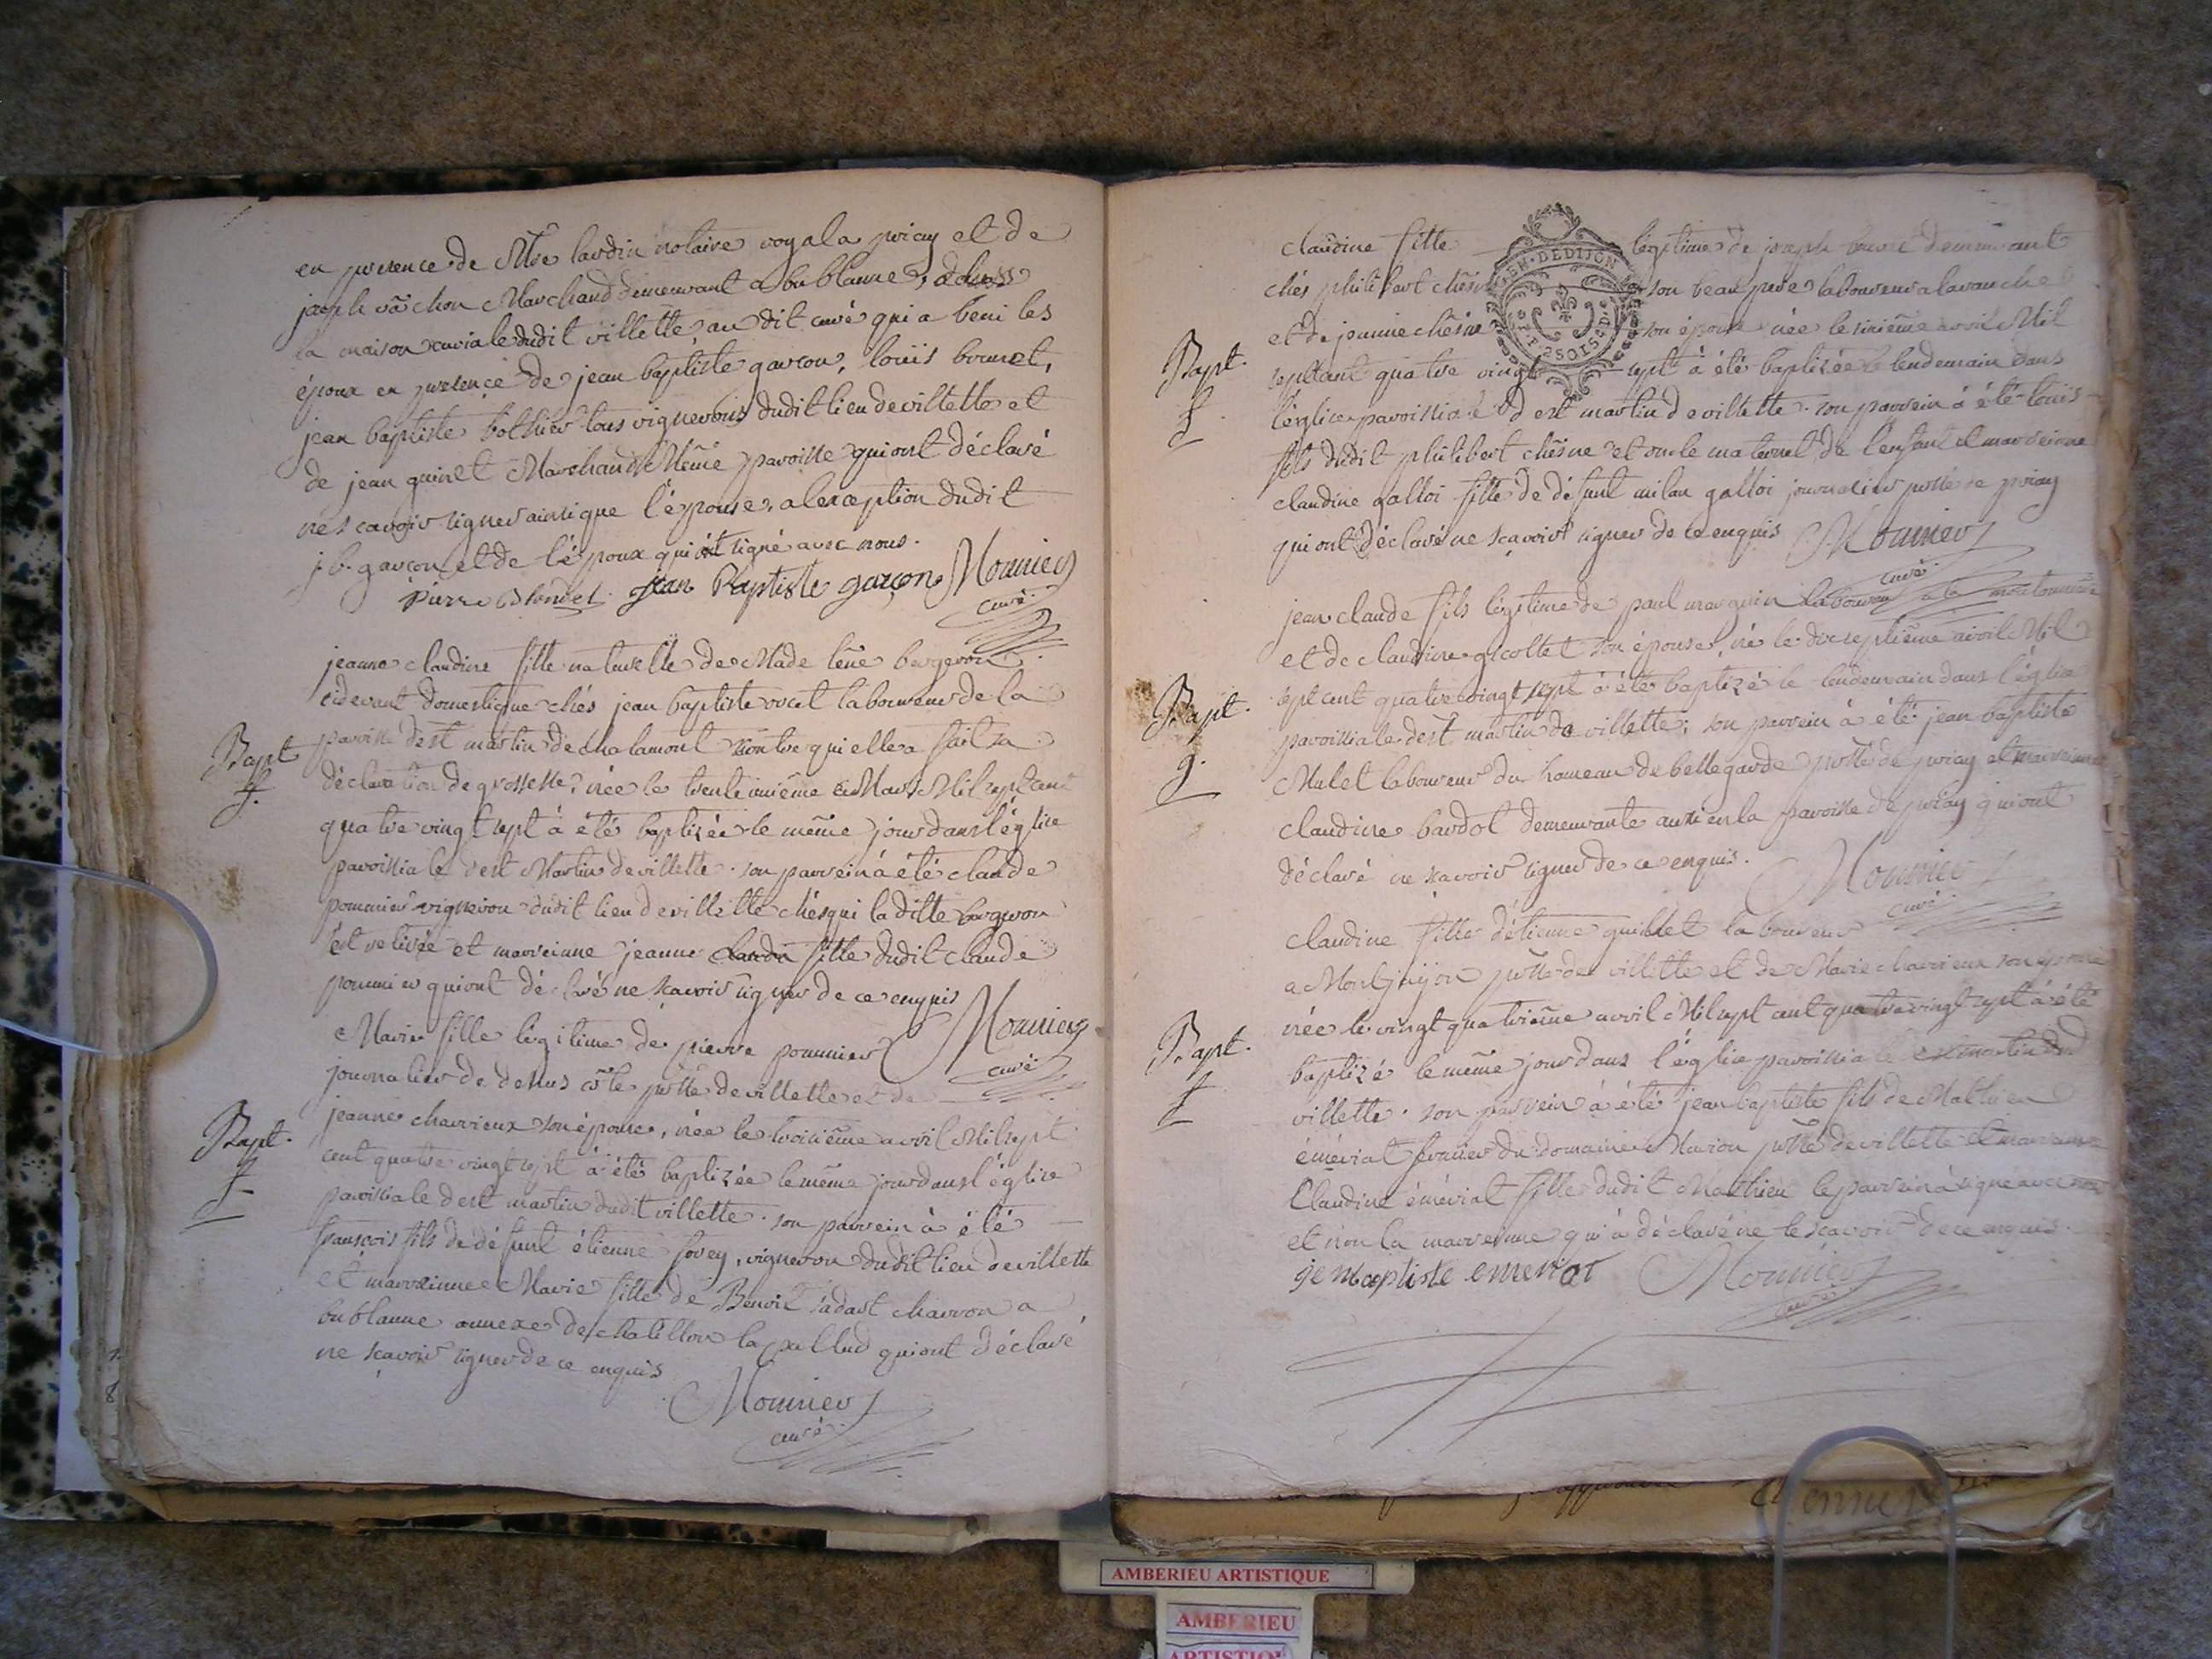 en presence de Mre lardin notaire royal a priay et de
joseph vâchon Marchand demeurant a bublanne, a
la maison curiale dudit villette, au dit curé qui a beni les
époux en presence de jean baptiste garçon, loüis bonnet,
jean baptiste bothier tous vignerons dudit lieu de villette et
de jean quinet Marchand Même paroisse qui ont déclaré
ne scavoir signer ainsi que l'épouse, a l'exception dudit
j. b. garçon et de l'époux qui ont signé avec nous.
pierre Blondel jean Baptiste garçon Mounier
curé
jeanne claudine fille naturelle de Madeleine bergeron
cidevant domestique chés jean baptiste vocat laboureur de la
Bapt
f.
paroisse de st martin de chalamont qui elle a fait sa
déclaration de grossesse, née le trente unième Mars Mil sept cent
quatre vingt sept à été baptizée le même jour dans l'église
paroissiale de st Martin de villette. son parrein à été claude
pommier vigneron dudit lieu de villette chés qui la ditte bergeron
est retirée et marreinne jeanne fille dudit claude
pommier qui ont déclaré ne scavoir signer de ce enquis
Mounier
curé
Marie fille légitime de pierre pommier
journalier de dessus côte psse de villette et de
Bapt.
f
jeanne charrieux son épouse, née le troisième avril Mil sept
cent quatre vingt sept à été baptizée le même jour dans l'église
paroissiale de st martin dudit villette. son parrein à été
françois fils de défunt étienne forey, vigneron dudit lieu de villette
et marreinne Marie fille de Benoit charron a
bublanne annexe de chatillon la pallud qui ont déclaré
ne scavoir signer de ce enquis
Mounier
curé
claudine fille légitime de joseph demeurant
GEN. DE DIJON
2 SOLS
chés philibert chêne son beau pere laboureur a lavanche
et de jeanne chêne son épouse née le sixième avril Mil
Bapt.
f
sept cent quatre vingt sept à été baptizée le lendemain dans
l'église paroissiale de st martin de villette. son parrein à été loüis
fils dudit philibert chêne et oncle maternel de l'enfant et marreinne
claudine galloi fille de défunt milan galloi journalier psse de priay
qui ont déclaré ne scavoir signer de ce enquis
Mounier
curé
jean claude fils légitime de paul marguin laboureur a la
et de claudine gicollet son épouse, né le dixseptième avril Mil
Bapt.
g.
sept cent quatre vingt sept à été baptizé le lendemain dans l'église
paroissiale de st martin de villette; son parrein à été jean baptiste
Mulet laboureur du hameau de bellegarde psse de priay et marreinne
claudine bardot demeurante aussi en la paroisse de priay qui ont
déclaré ne scavoir signer de ce enquis.
Mounier
curé
claudine fille d'étienne guillet laboureur
a Montgrijon psse de villette et de Marie charrieux son épouse
Bapt.
f
née le vingt quatrième avril Mil sept cent quatre vingt sept à été
baptizé le même jour dans l'église paroissiale de st martin dud
villette. son parrein à été jean baptiste fils de Mathieu
émériat fermier du domaine Marion psse de villette et marreinne
Claudine émériat fille dudit Mathieu le parrein à signé avec nous
et non la marreinne qui à déclaré ne le scavoir de ce enquis.
jembaptiste emeriat Mounier
curé
AMBERIEU ARTISTIQUE
AMBERIEU
ARTISTIQUE